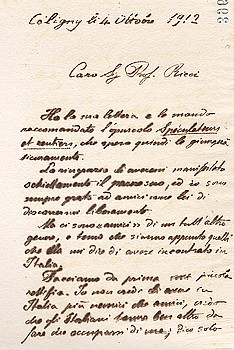 Céligny li 4 Ottobre 1912
Caro Sig Prof. Ricci
Ho la sua lettera e le mando
raccomandato l'opuscolo Spéculateurs
et rentiers, che spero quindi le giungerà
sicuramente.
La ringrazio di avermi manifestato
schiettamente il suo, ed io sono
sempre grato ad amici come lei di
discorrermi liberamente.
Ma ci sono amici di un tutt'altro
genere, e temo che siano appunto quelli
che ella mi dice di avere incontrato in
Italia.
Facciamo da prima una piccola
rettifica. Io non credo di avere in
Italia più nemici che amici, credo
che gli Italiani hanno ben altro da
fare che occuparsi di me; dico solo